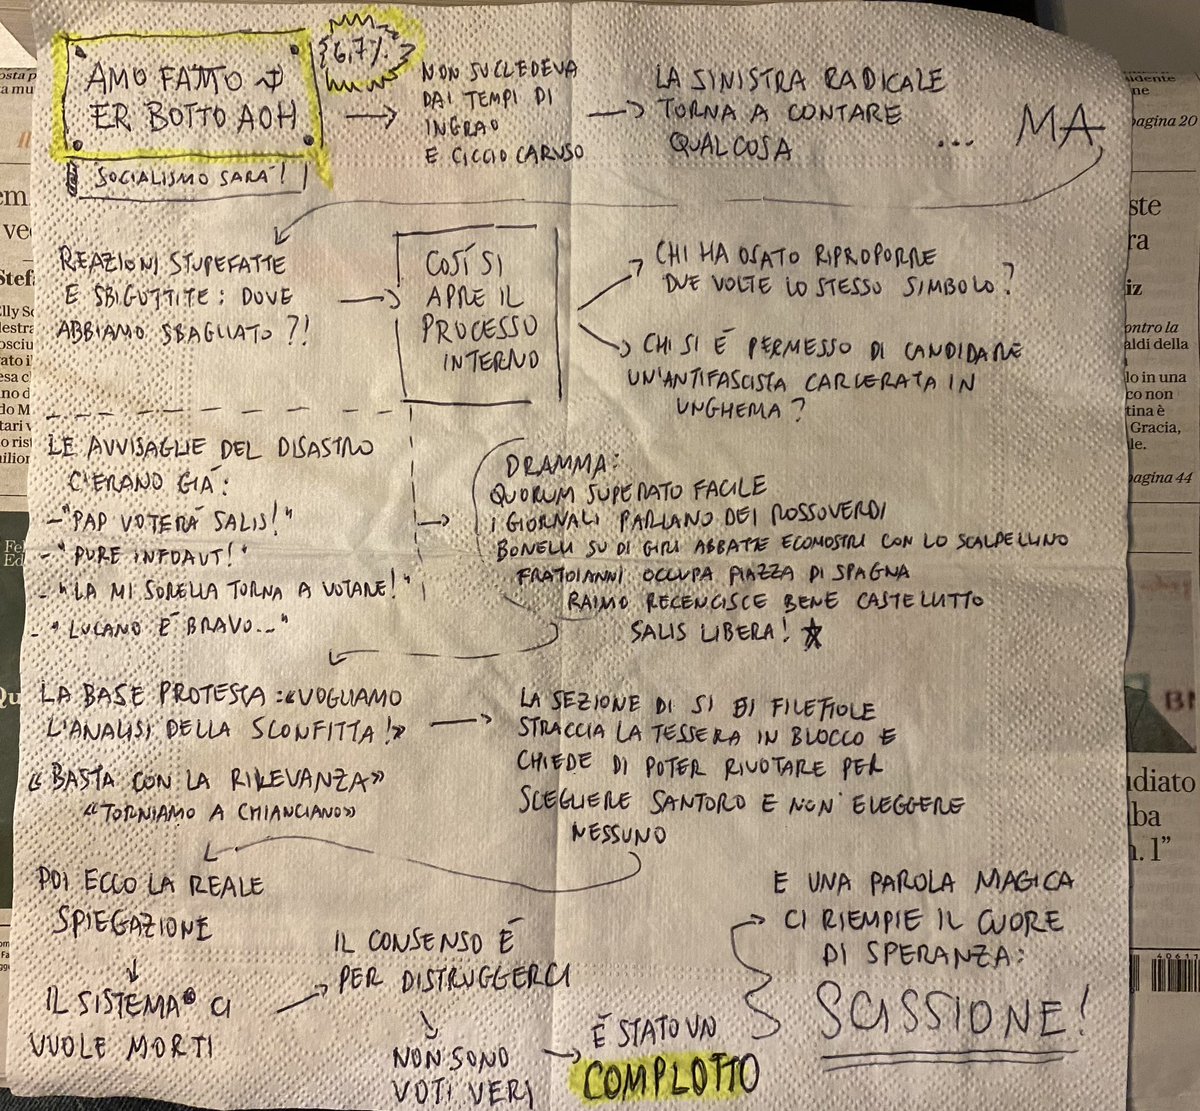 AMO FATTO
ER BOTTO AOH
6,7%
SOCIALISMO SARA'!
NON SUCCEDEVA
DAI TEMPI DI
INGRAO
E CICCIO CARUSO
LA SINISTRA RADICALE
TORNA A CONTARE
QUALCOSA
... MA
REAZIONI STUPEFATTE
E SBIGOTTITE: DOVE
ABBIAMO SBAGLIATO?!
COSÍ SI
APRE IL
PROCESSO
INTERNO
CHI HA OSATO RIPROPORRE
DUE VOLTE LO STESSO SIMBOLO?
CHI SI É PERMESSO DI CANDIDARE
UN'ANTIFASCISTA CARCERATA IN
UNGHERIA?
LE AVVISAGLIE DEL DISASTRO
C'ERANO GIÀ:
-"PAP VOTERÀ SALIS!"
-"PURE INFOAUT!"
-"LA MI SORELLA TORNA A VOTARE!"
-"LUCANO É BRAVO..."
DRAMMA:
QUORUM SUPERATO FACILE
I GIORNALI PARLANO DEI ROSSOVERDI
BONELLI SU DI GIRI ABBATTE ECOMOSTRI CON LO SCALPELLINO
FRATOIANNI OCCUPA PIAZZA DI SPAGNA
RAIMO RECENCISCE BENE CASTELLITTO
SALIS LIBERA!
LA BASE PROTESTA: «VOGLIAMO
L'ANALISI DELLA SCONFITTA!»
«BASTA CON LA RILEVANZA»
«TORNIAMO A CHIANCIANO»
LA SEZIONE DI SI DI FILETTOLE
STRACCIA LA TESSERA IN BLOCCO E
CHIEDE DI POTER RIVOTARE PER
SCEGLIERE SANTORO E NON ELEGGERE
NESSUNO
POI ECCO LA REALE
SPIEGAZIONE
IL SISTEMA CI
VUOLE MORTI
IL CONSENSO É
PER DISTRUGGERCI
NON SONO
VOTI VERI
É STATO UN
COMPLOTTO
E UNA PAROLA MAGICA
CI RIEMPIE IL CUORE
DI SPERANZA:
SCISSIONE!
pagina 20
pagina 44